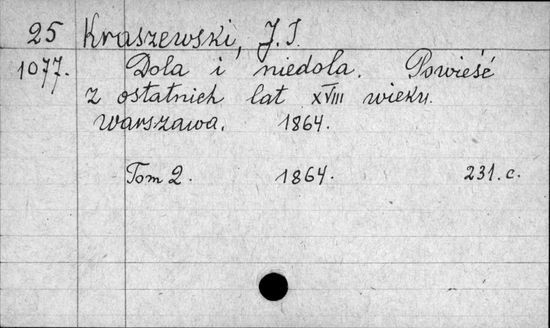 25 Kraszewski, J. I.
1077. Dola i niedola. Powieść
z ostatnich lat XVIII wieku.
Warszawa. 1864.
Tom 2. 1864. 231. c.